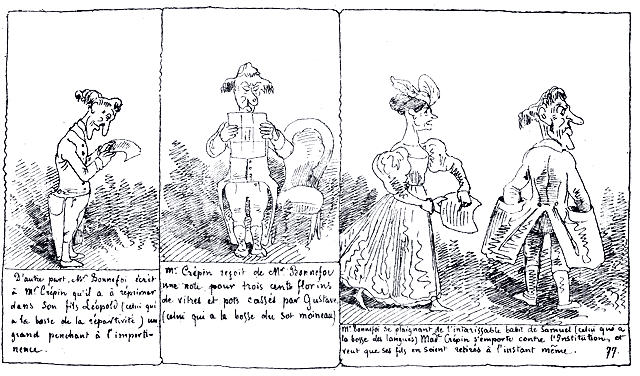 D'autre part, Mr Bonnefoi écrit
à Mr Crépin qu'il a à réprimer
dans son fils Léopold (celui qui
a la bosse de la répartivité) un
grand penchant à l'imperti-
nence.
Mr Crépin reçoit de Mr Bonnefoi
une note, pour trois cents florins
de vitres et pots cassés par Gustave,
(celui qui a la bosse du sot moineau)
Mr Bonnefoi se plaignant de l'intarissable babil de Samuel (celui qui a
la bosse des langues) Made Crépin s'emporte contre l'Institution, et
veut que ses fils en soient retirés à l'instant même.
77.